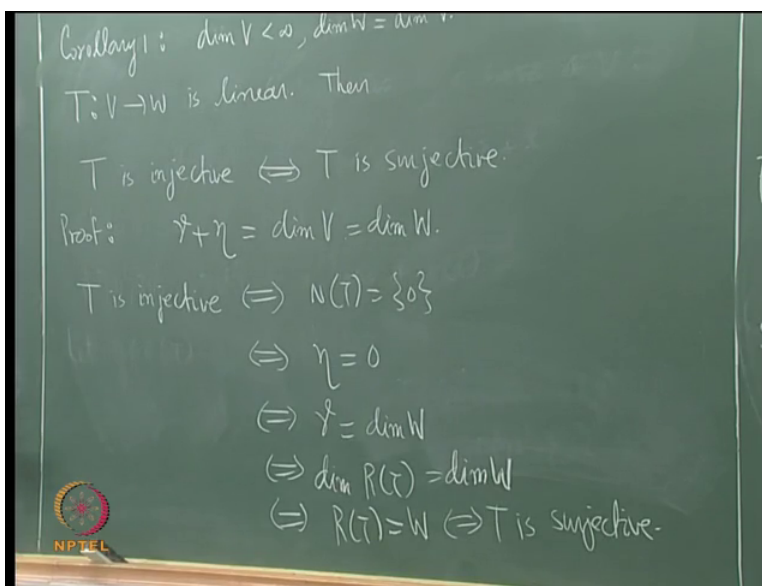 Corollary 1: dim V < ∞, dim W = dim V.
T: V → W is linear. Then
T is injective ⟺ T is surjective.
Proof: r + η = dim V = dim W.
T is injective ⟺ N(T) = {0}
⟺ η = 0
⟺ r = dim W
⟺ dim R(T) = dim W
⟺ R(T) = W ⟺ T is surjective.
NPTEL